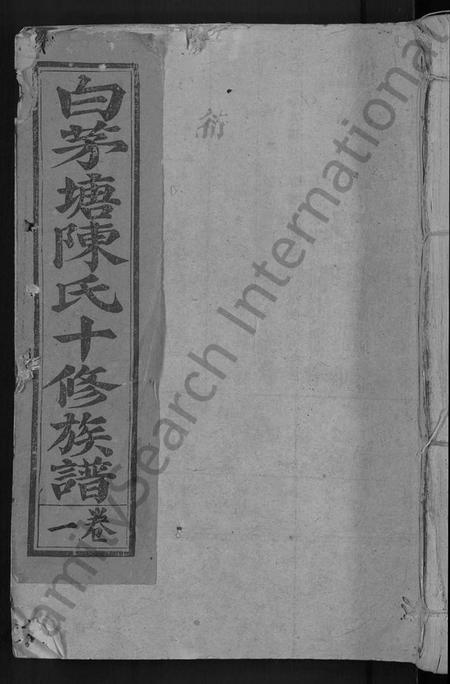 白茅塘陳氏十修族譜
卷一
衍
FamilySearch International